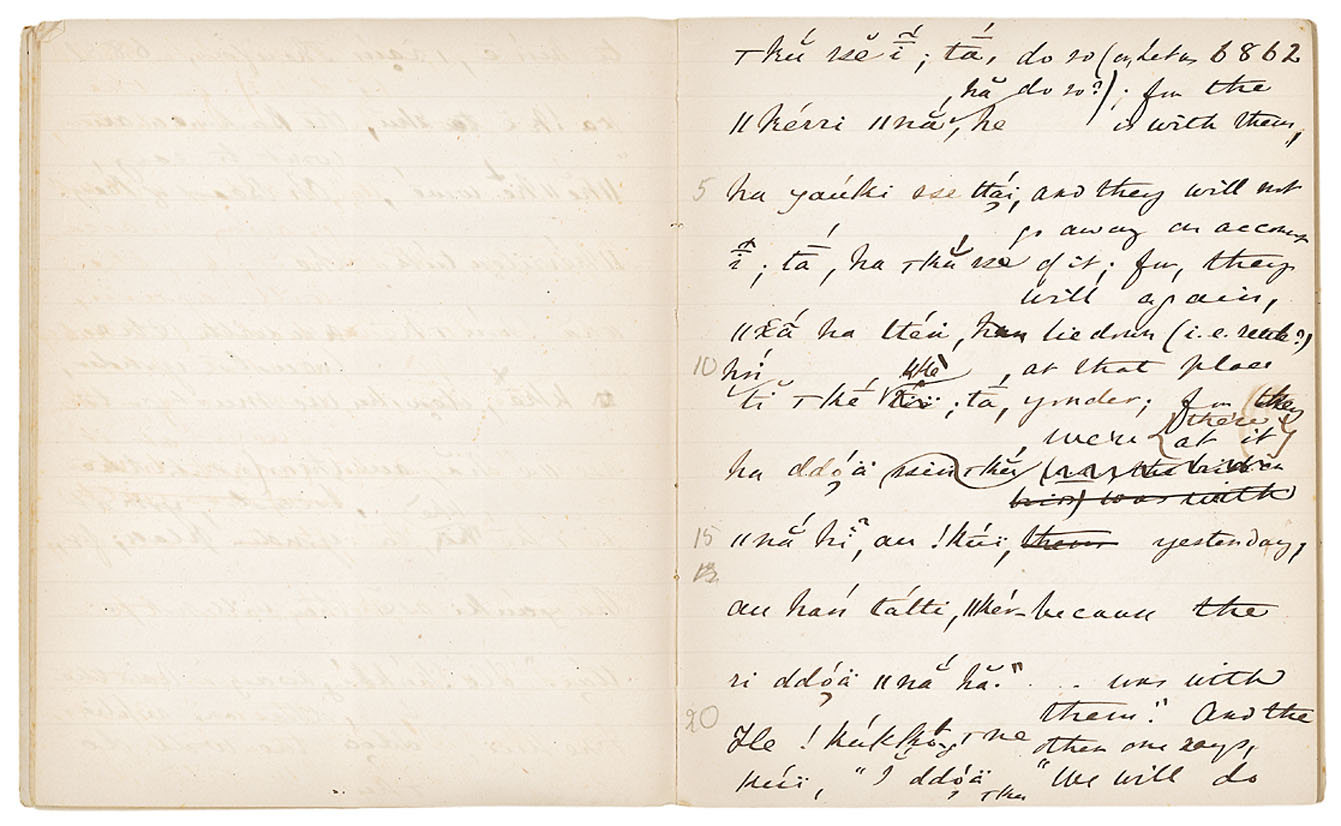 ꞱkŬ́ ssĕ ī̆́; tā́, do so (or, let us 6862
hă do so?); for the
ǁkérri ǁnā̆́, he is with them,
5 ha yaúki sse ttại, and they will not
go away on account
ī̆; tā́, ha Ʇkŭ́ sse of it; for, they
will again,
ǁxā́ ha ttén, lie down (i.e. settle?)
10 hó
, at that place
tĭ Ʇké ǁkē̆; tā́, yonder; for they
there
, were at it
ha ddóä̤
15 ǁnā̆́ hĭ, au !kúï, them yesterday,
au haṅ tátti, ǁkér- because the
ri ddóä ǁnā̆́ hă." was with
20 them." And the
He !kúkkó, Ʇne other one says,
kúï, "I ddóä Ʇku "We will do